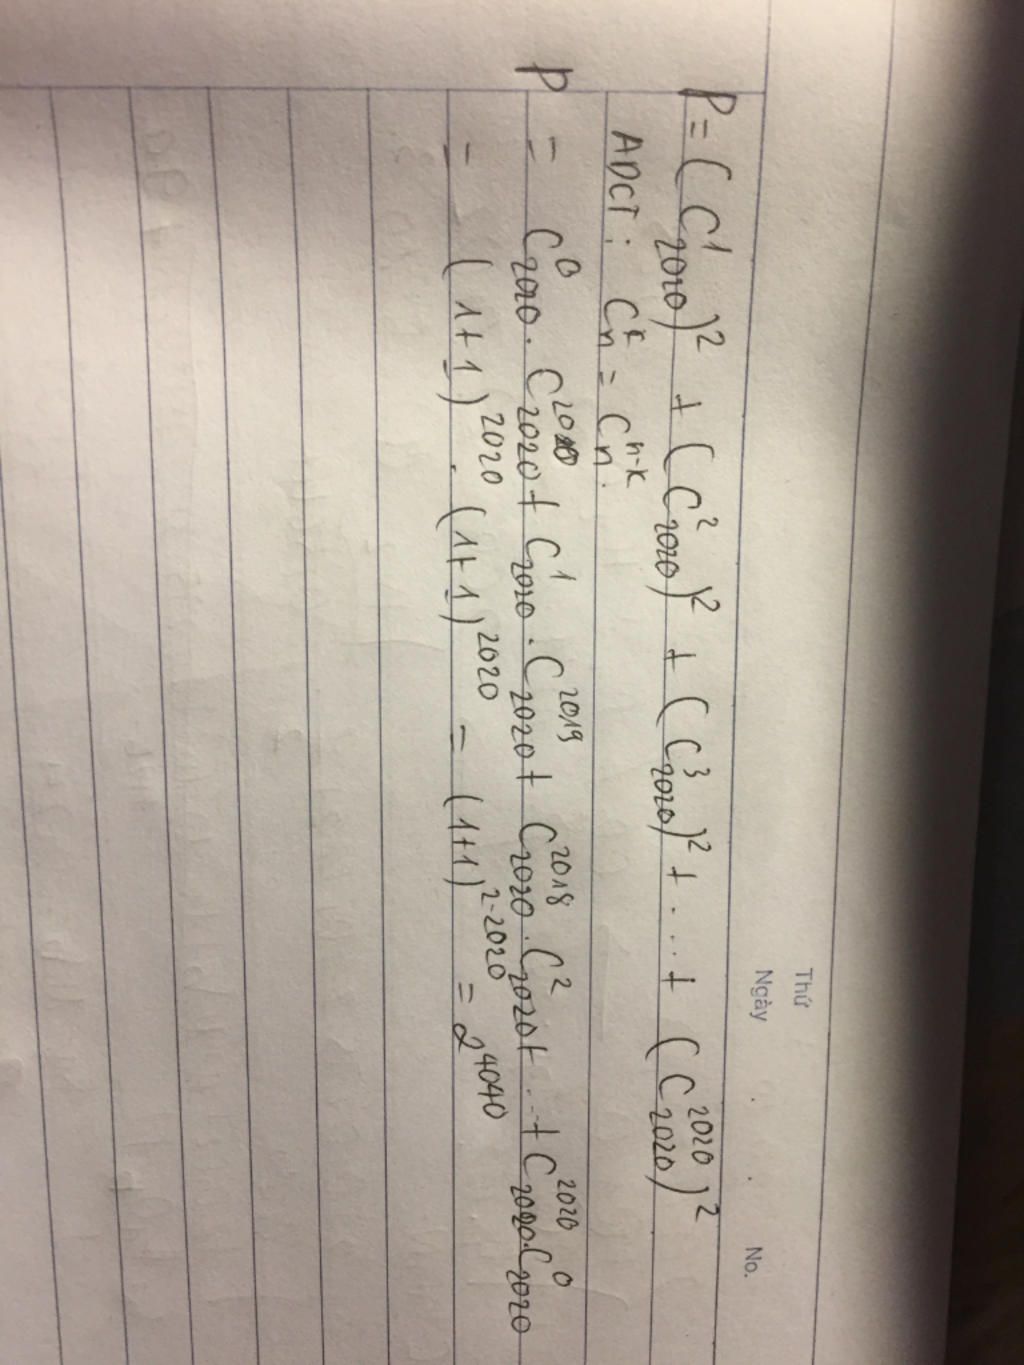 Thứ
Ngày No.
P = (C¹₂₀₂₀)² + (C²₂₀₂₀)² + (C³₂₀₂₀)² + ... + (C²⁰²⁰₂₀₂₀)²
ADCT: Cᵏₙ = Cⁿ⁻ᵏₙ.
P = C⁰₂₀₂₀ . C²⁰²⁰₂₀₂₀ + C¹₂₀₂₀ . C²⁰¹⁹₂₀₂₀ + C²⁰¹⁸₂₀₂₀ . C²₂₀₂₀ + ... + C²⁰²⁰₂₀₂₀ . C⁰₂₀₂₀
= (1+1)²⁰²⁰ . (1+1)²⁰²⁰ = (1+1)²·²⁰²⁰ = 2⁴⁰⁴⁰